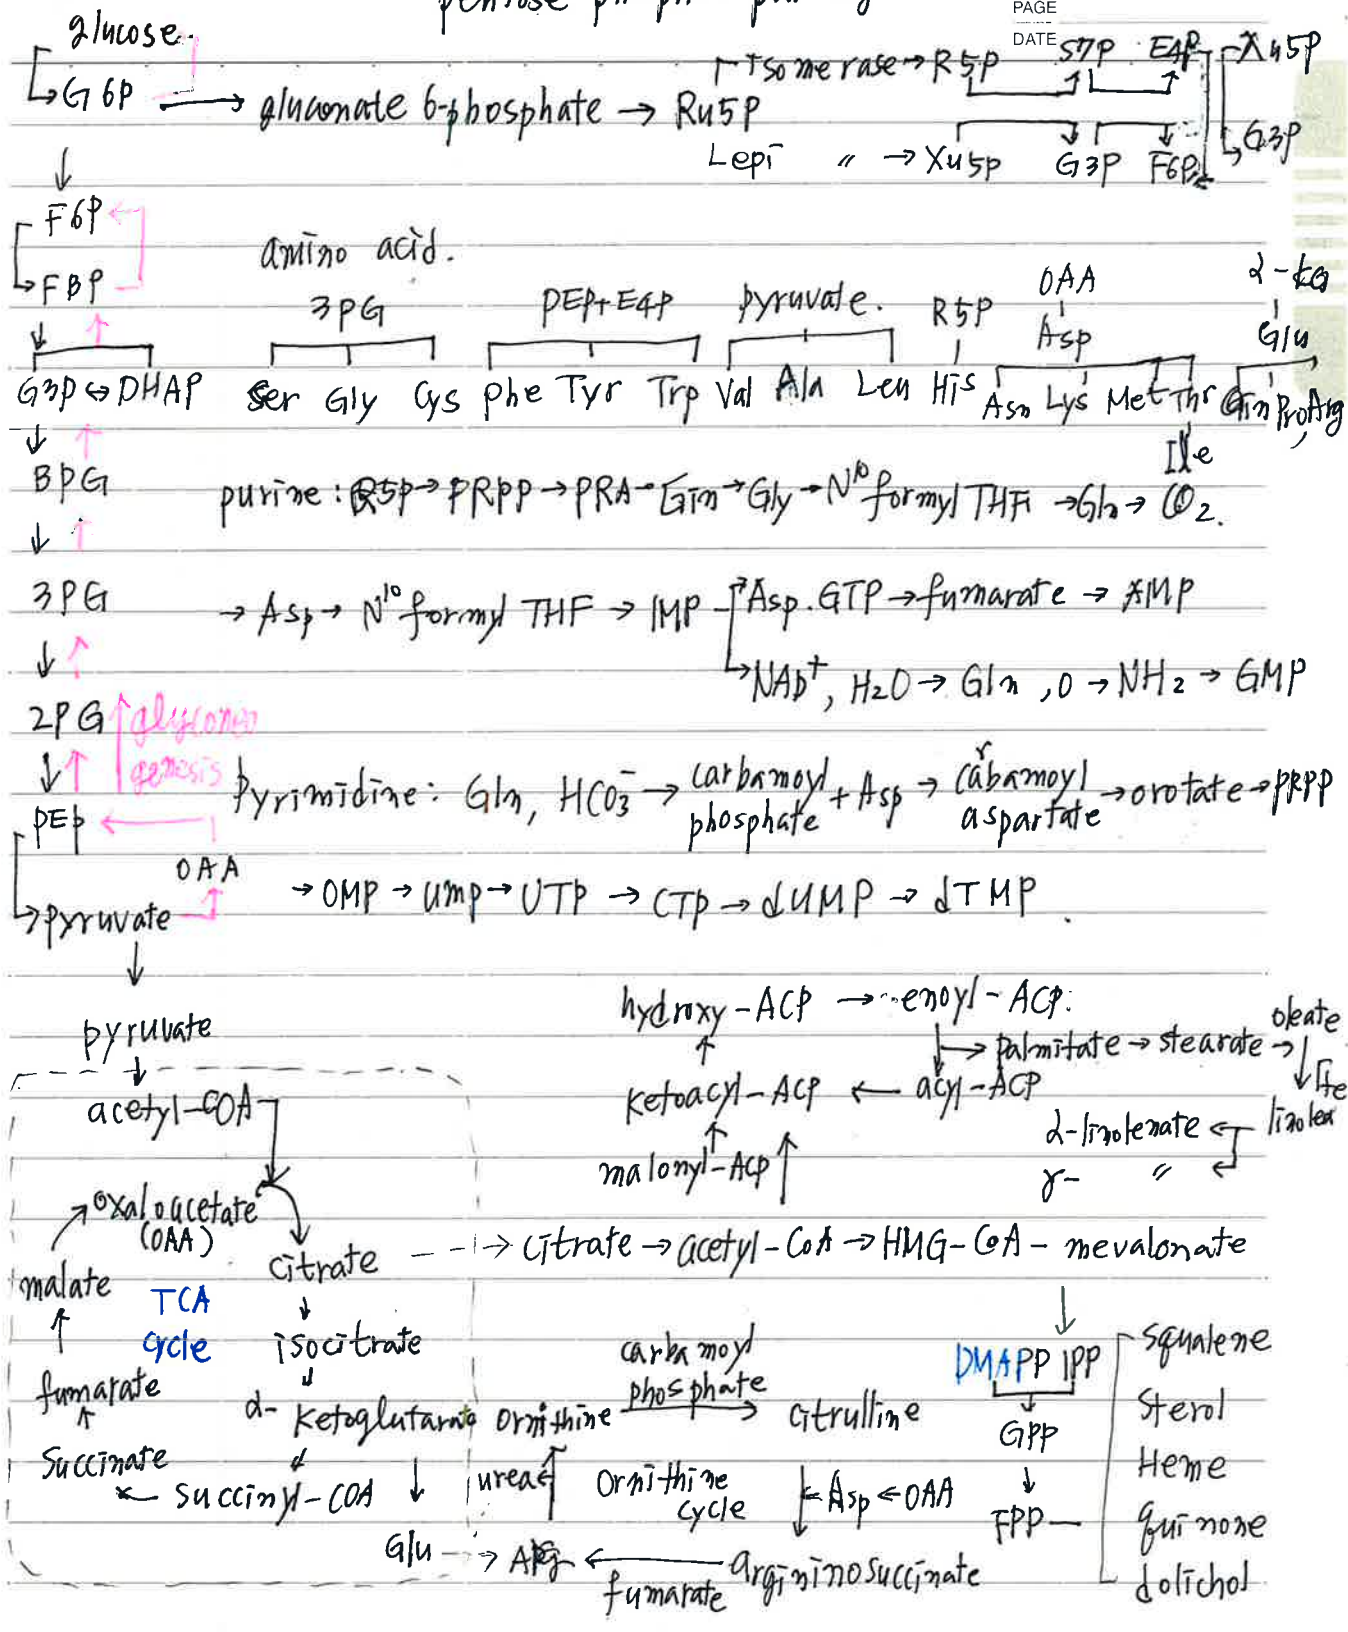 pentose ph ph pa y
PAGE
DATE
glucose
G6P → gluconate 6-phosphate → Ru5P
Isomerase → R5P S7P E4P Xu5P
Lepi 〃 → Xu5P G3P F6P G3P
F6P
FBP
G3P ↔ DHAP
BPG
3PG
2PG
PEP
OAA
pyruvate
glyconeo
genesis
amino acid.
3PG PEP+E4P pyruvate. R5P OAA α-KG
Asp Glu
Ser Gly Cys Phe Tyr Trp Val Ala Leu His Asn Lys Met Thr Gln Pro, Arg
Ile
purine: R5P → PRPP → PRA → Gln → Gly → N¹⁰ formyl THF → Gln → CO₂.
→ Asp → N¹⁰ formyl THF → IMP → Asp. GTP → fumarate → AMP
→ NAD⁺, H₂O → Gln, O → NH₂ → GMP
Pyrimidine: Gln, HCO₃⁻ → carbamoyl phosphate + Asp → carbamoyl aspartate → orotate → PRPP
→ OMP → UMP → UTP → CTP → dUMP → dTMP.
pyruvate
acetyl-COA
oxaloacetate
(OAA)
citrate
malate
TCA
cycle
isocitrate
fumarate
α-ketoglutarate
succinate
succinyl-COA
Glu
hydroxy-ACP → enoyl-ACP.
palmitate → stearate → oleate
ketoacyl-ACP ← acyl-ACP
α-linolenate ←
γ- 〃 ←
malonyl-ACP
citrate → acetyl-CoA → HMG-CoA - mevalonate
DMAPP IPP
GPP
FPP
squalene
Sterol
Heme
quinone
dolichol
ornithine carbamoyl phosphate → citrulline
urea
Ornithine
cycle
← Asp ← OAA
Arg ← argininosuccinate
fumarate